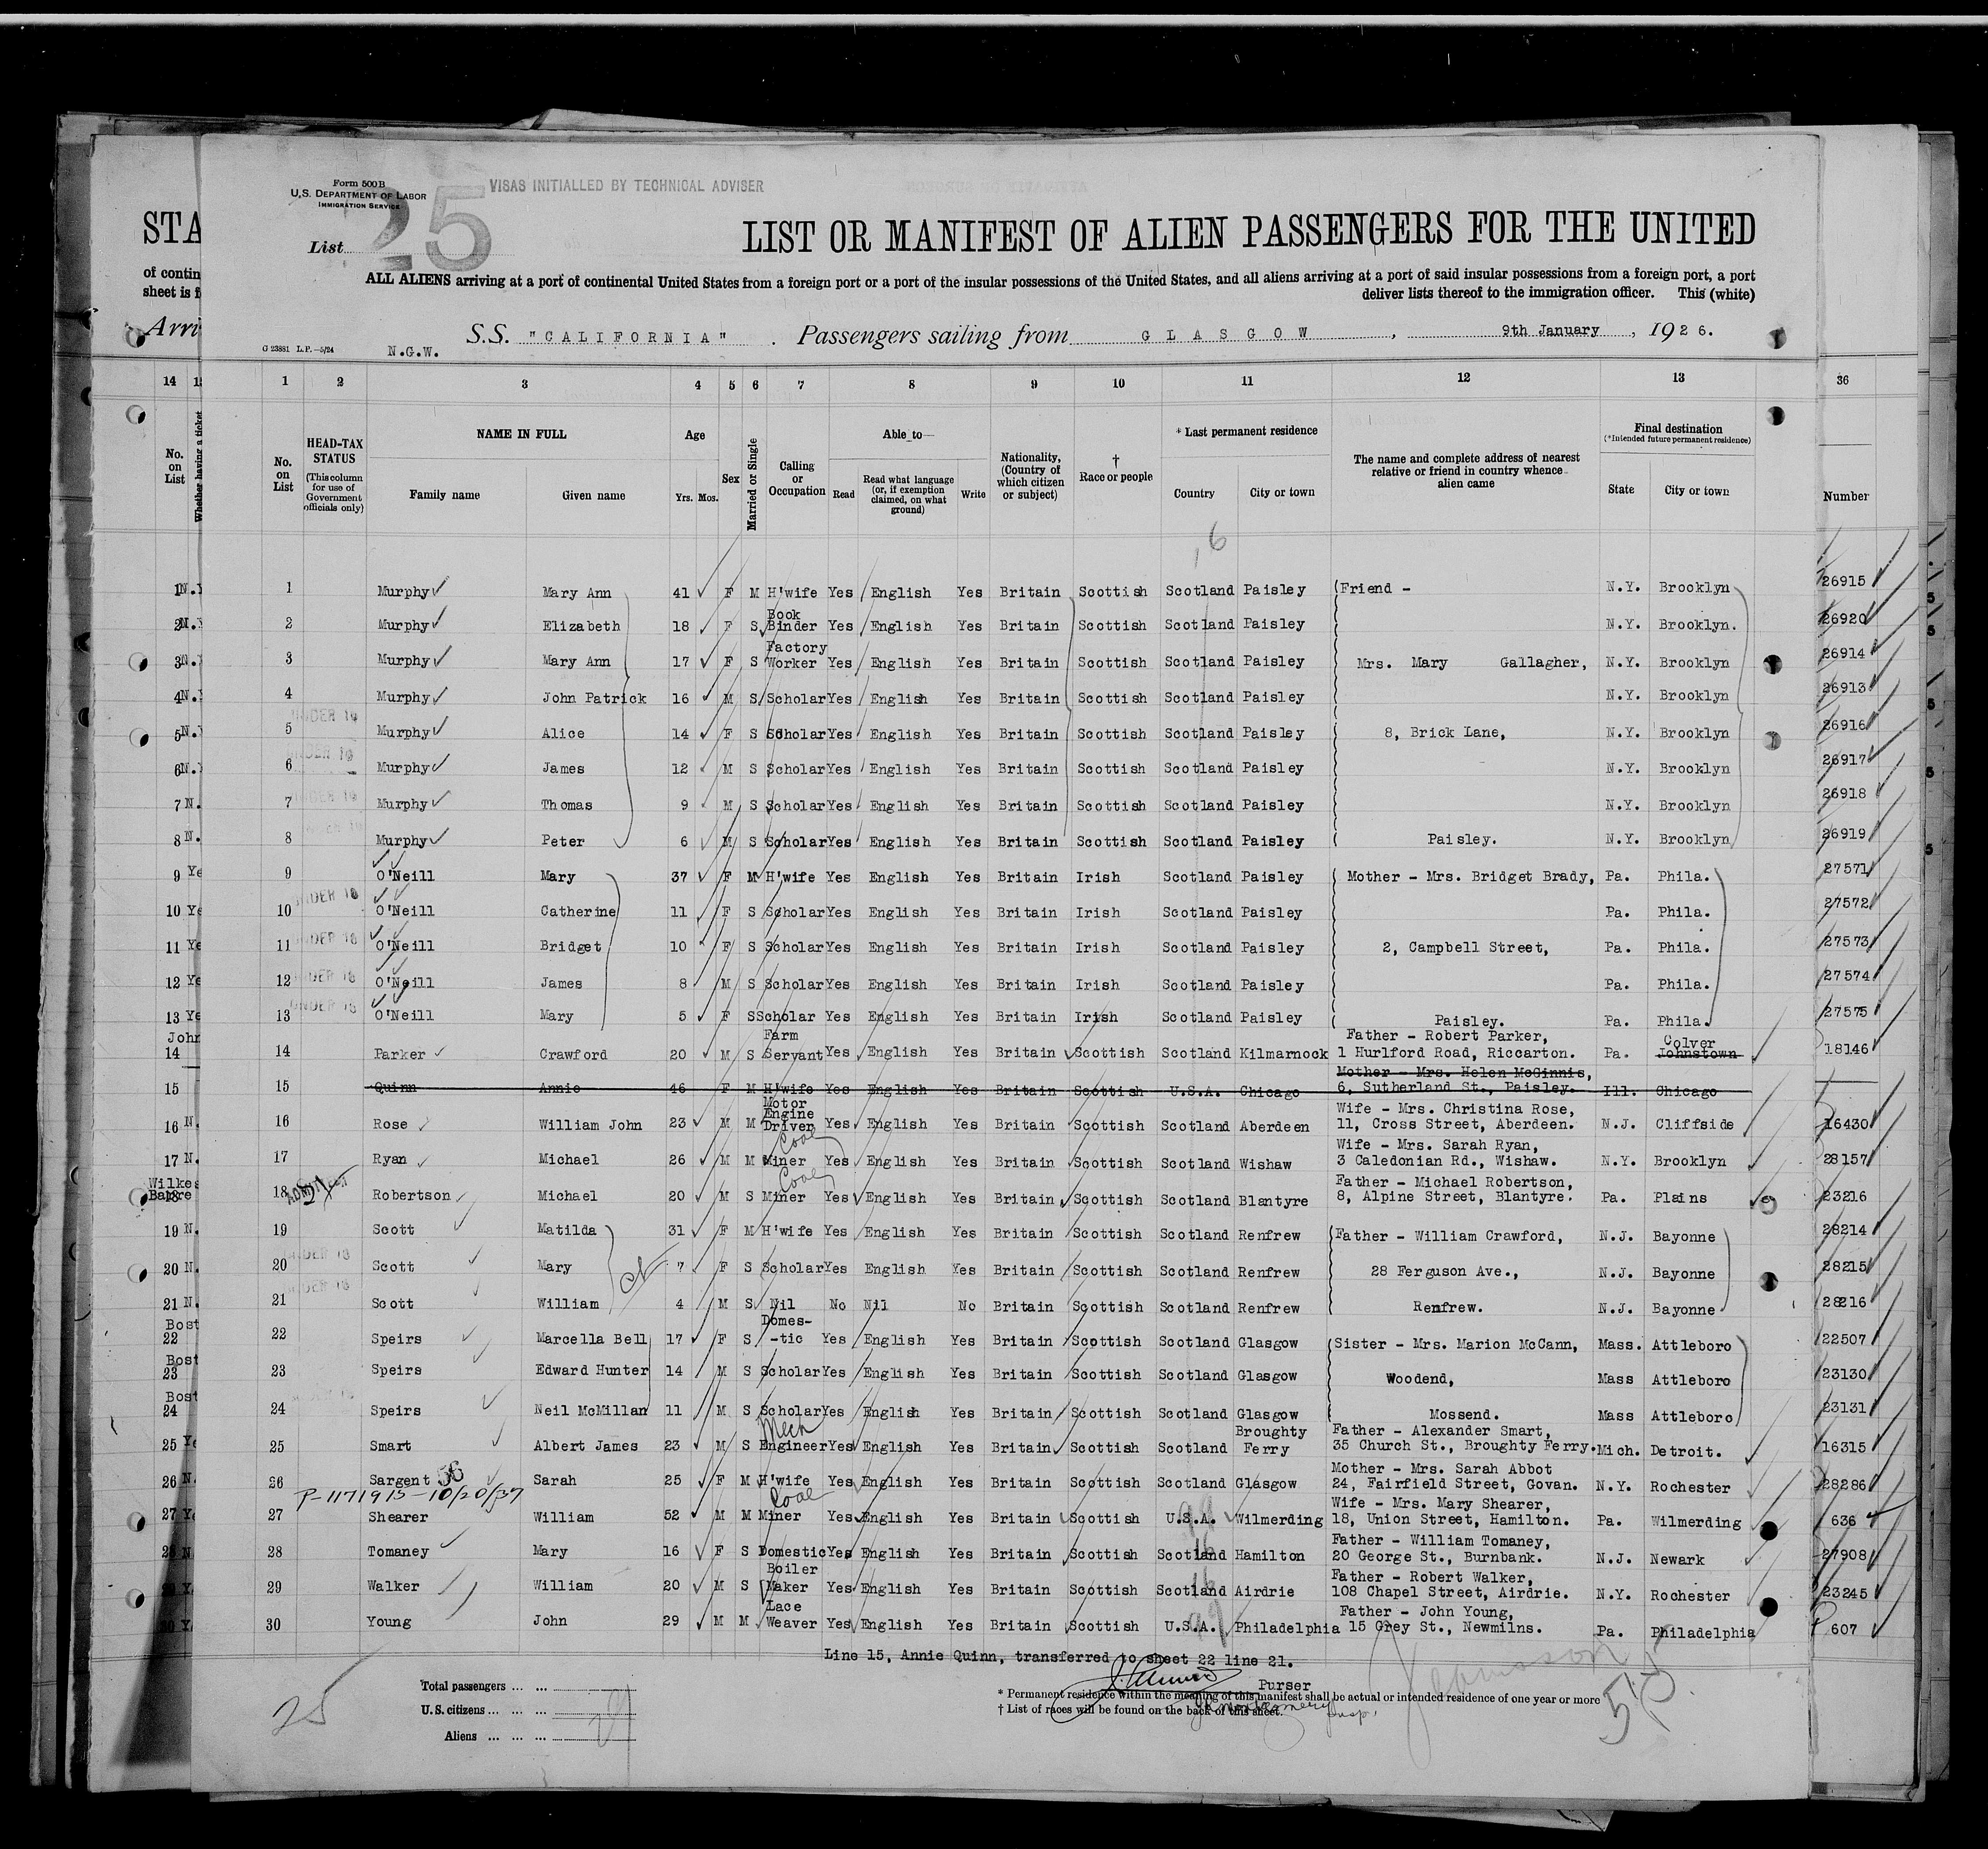 Form 500 B
U.S. DEPARTMENT OF LABOR
IMMIGRATION SERVICE
VISAS INITIALLED BY TECHNICAL ADVISER
List 25
STA
LIST OR MANIFEST OF ALIEN PASSENGERS FOR THE UNITED
of contin
ALL ALIENS arriving at a port of continental United States from a foreign port or a port of the insular possessions of the United States, and all aliens arriving at a port of said insular possessions from a foreign port, a port
sheet is f
deliver lists thereof to the immigration officer. This (white)
Arri
S.S. "CALIFORNIA" . Passengers sailing from GLASGOW, 9th January, 1926.
G 23881 L.P.—5/24 N.G.W.
14 1 1 2 3 4 5 6 7 8 9 10 11 12 13 36
No. on List
Whether having a ticket
No. on List
HEAD-TAX STATUS
(This column for use of Government officials only)
NAME IN FULL
Family name Given name
Age
Yrs. Mos.
Sex
Married or Single
Calling or Occupation
Able to—
Read
Read what language (or, if exemption claimed, on what ground)
Write
Nationality, (Country of which citizen or subject)
† Race or people
* Last permanent residence
Country City or town
The name and complete address of nearest relative or friend in country whence alien came
Final destination
(*Intended future permanent residence)
State City or town
Number
6
1 N.Y 1 Murphy Mary Ann 41 F M H'wife Yes English Yes Britain Scottish Scotland Paisley Friend - N.Y. Brooklyn 26915
2 N.Y 2 Murphy Elizabeth 18 F S Book Binder Yes English Yes Britain Scottish Scotland Paisley N.Y. Brooklyn. 26920
3 N.Y 3 Murphy Mary Ann 17 F S Factory Worker Yes English Yes Britain Scottish Scotland Paisley Mrs. Mary Gallagher, N.Y. Brooklyn 26914
4 N.Y 4 Murphy John Patrick 16 M S Scholar Yes English Yes Britain Scottish Scotland Paisley N.Y. Brooklyn 26913
5 N.Y 5 UNDER 16 Murphy Alice 14 F S Scholar Yes English Yes Britain Scottish Scotland Paisley 8, Brick Lane, N.Y. Brooklyn 26916
6 N.Y 6 UNDER 16 Murphy James 12 M S Scholar Yes English Yes Britain Scottish Scotland Paisley N.Y. Brooklyn 26917
7 N. 7 UNDER 16 Murphy Thomas 9 M S Scholar Yes English Yes Britain Scottish Scotland Paisley N.Y. Brooklyn 26918
8 N. 8 UNDER 16 Murphy Peter 6 M S Scholar Yes English Yes Britain Scottish Scotland Paisley Paisley. N.Y. Brooklyn 26919
9 Ye 9 O'Neill Mary 37 F M H'wife Yes English Yes Britain Irish Scotland Paisley Mother - Mrs. Bridget Brady, Pa. Phila. 27571
10 Ye 10 UNDER 16 O'Neill Catherine 11 F S Scholar Yes English Yes Britain Irish Scotland Paisley Pa. Phila. 27572
11 Ye 11 UNDER 16 O'Neill Bridget 10 F S Scholar Yes English Yes Britain Irish Scotland Paisley 2, Campbell Street, Pa. Phila. 27573
12 Ye 12 UNDER 16 O'Neill James 8 M S Scholar Yes English Yes Britain Irish Scotland Paisley Pa. Phila. 27574
13 Ye 13 UNDER 16 O'Neill Mary 5 F S Scholar Yes English Yes Britain Irish Scotland Paisley Paisley. Pa. Phila. 27575
John 14 14 Parker Crawford 20 M S Farm Servant Yes English Yes Britain Scottish Scotland Kilmarnock Father - Robert Parker, 1 Hurlford Road, Riccarton. Pa. Colver Johnstown 18146
15 15 Quinn Annie 46 F M H'wife Yes English Yes Britain Scottish U.S.A. Chicago Mother - Mrs. Helen McGinnis, 6, Sutherland St., Paisley. Ill. Chicago
16 N. 16 Rose William John 23 M M Motor Engine Driver Yes English Yes Britain Scottish Scotland Aberdeen Wife - Mrs. Christina Rose, 11, Cross Street, Aberdeen. N.J. Cliffside 16430
17 N. 17 Ryan Michael 26 M M Coal Miner Yes English Yes Britain Scottish Scotland Wishaw Wife - Mrs. Sarah Ryan, 3 Caledonian Rd., Wishaw. N.Y. Brooklyn 28157
Wilkes Barre 18 18 ADMITTED Robertson Michael 20 M S Coal Miner Yes English Yes Britain Scottish Scotland Blantyre Father - Michael Robertson, 8, Alpine Street, Blantyre. Pa. Plains 23216
19 N. 19 Scott Matilda 31 F M H'wife Yes English Yes Britain Scottish Scotland Renfrew Father - William Crawford, N.J. Bayonne 28214
20 N. 20 UNDER 16 Scott Mary 7 F S Scholar Yes English Yes Britain Scottish Scotland Renfrew 28 Ferguson Ave., N.J. Bayonne 28215
21 N. 21 UNDER 16 Scott William 4 M S Nil No Nil No Britain Scottish Scotland Renfrew Renfrew. N.J. Bayonne 28216
Bost 22 22 Speirs Marcella Bell 17 F S Domes-tic Yes English Yes Britain Scottish Scotland Glasgow Sister - Mrs. Marion McCann, Mass. Attleboro 22507
Bost 23 23 Speirs Edward Hunter 14 M S Scholar Yes English Yes Britain Scottish Scotland Glasgow Woodend, Mass Attleboro 23130
Bost 24 24 UNDER 16 Speirs Neil McMillan 11 M S Scholar Yes English Yes Britain Scottish Scotland Glasgow Mossend. Mass Attleboro 23131
25 Ye 25 Smart Albert James 23 M S Mech Engineer Yes English Yes Britain Scottish Scotland Broughty Ferry Father - Alexander Smart, 35 Church St., Broughty Ferry. Mich. Detroit. 16315
26 N. 26 Sargent 56 Sarah 25 F M H'wife Yes English Yes Britain Scottish Scotland Glasgow Mother - Mrs. Sarah Abbot 24, Fairfield Street, Govan. N.Y. Rochester 28286
P-1171915-10/20/37
27 Ye 27 Shearer William 52 M M Coal Miner Yes English Yes Britain Scottish U.S.A. Wilmerding Wife - Mrs. Mary Shearer, 18, Union Street, Hamilton. Pa. Wilmerding 636
28 N 28 Tomaney Mary 16 F S Domestic Yes English Yes Britain Scottish Scotland Hamilton Father - William Tomaney, 20 George St., Burnbank. N.J. Newark 27908
29 Y 29 Walker William 20 M S Boiler Maker Yes English Yes Britain Scottish Scotland Airdrie Father - Robert Walker, 108 Chapel Street, Airdrie. N.Y. Rochester 23245
30 Y 30 Young John 29 M M Lace Weaver Yes English Yes Britain Scottish U.S.A. Philadelphia Father - John Young, 15 Grey St., Newmilns. Pa. Philadelphia 607
Line 15, Annie Quinn, transferred to sheet 22 line 21.
Purser
25
Total passengers ... ...
U.S. citizens ... ... ...
Aliens ... ... ...
* Permanent residence within the meaning of this manifest shall be actual or intended residence of one year or more
† List of races will be found on the back of this sheet.